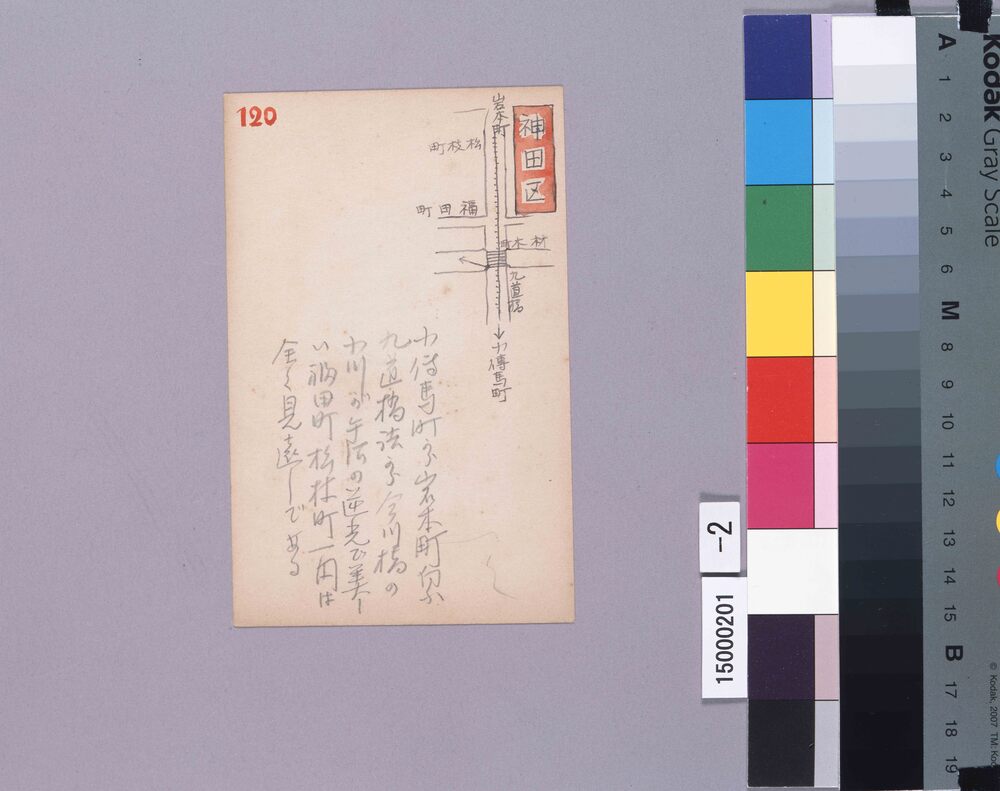 120
神田区
岩本町
松枝町
福田町
材木町
九道橋
小傳馬町
小傳馬町から岩本町
九道橋 今川橋の
小川が午后の逆光で美し
い福田町松枝町一円は
全く見遠しである
-2
15000201
Kodak Gray Scale
A 1 2 3 4 5 6 M 8 9 10 11 12 13 14 15 B 17 18 19
© Kodak, 2007 TM: